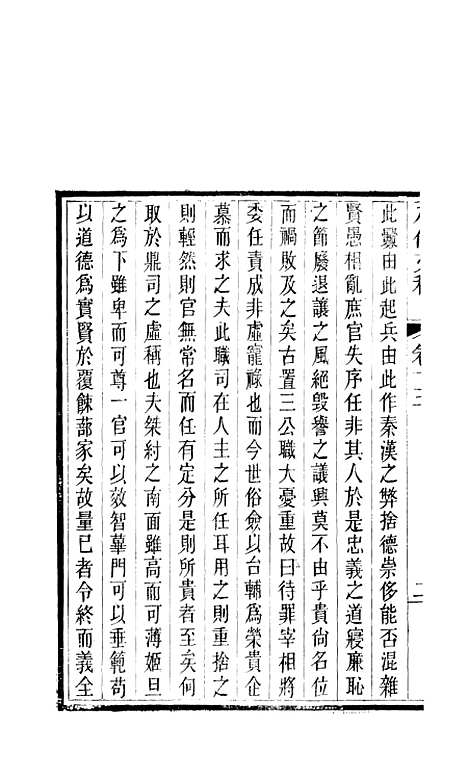 此釁由此起兵由此作秦漢之弊捨德崇侈能否混雜
賢愚相亂庶官失序任非其人於是忠義之道寢廉恥
之節廢退讓之風絕毀譽之議興莫不由乎貴尙名位
而禍敗及之矣古置三公職大憂重故曰待罪宰相將
委任責成非虛寵祿也而今世俗僉以台輔爲榮貴企
慕而求之夫此職司在人主之所任耳用之則重捨之
則輕然則官無常名而任有定分是則所貴者至矣何
取於鼎司之虛稱也夫桀紂之南面雖高而可薄姬旦
之爲下雖卑而可尊一官可以效智蓽門可以垂範苟
以道德爲實賢於覆餗蔀家矣故量已者令終而義全